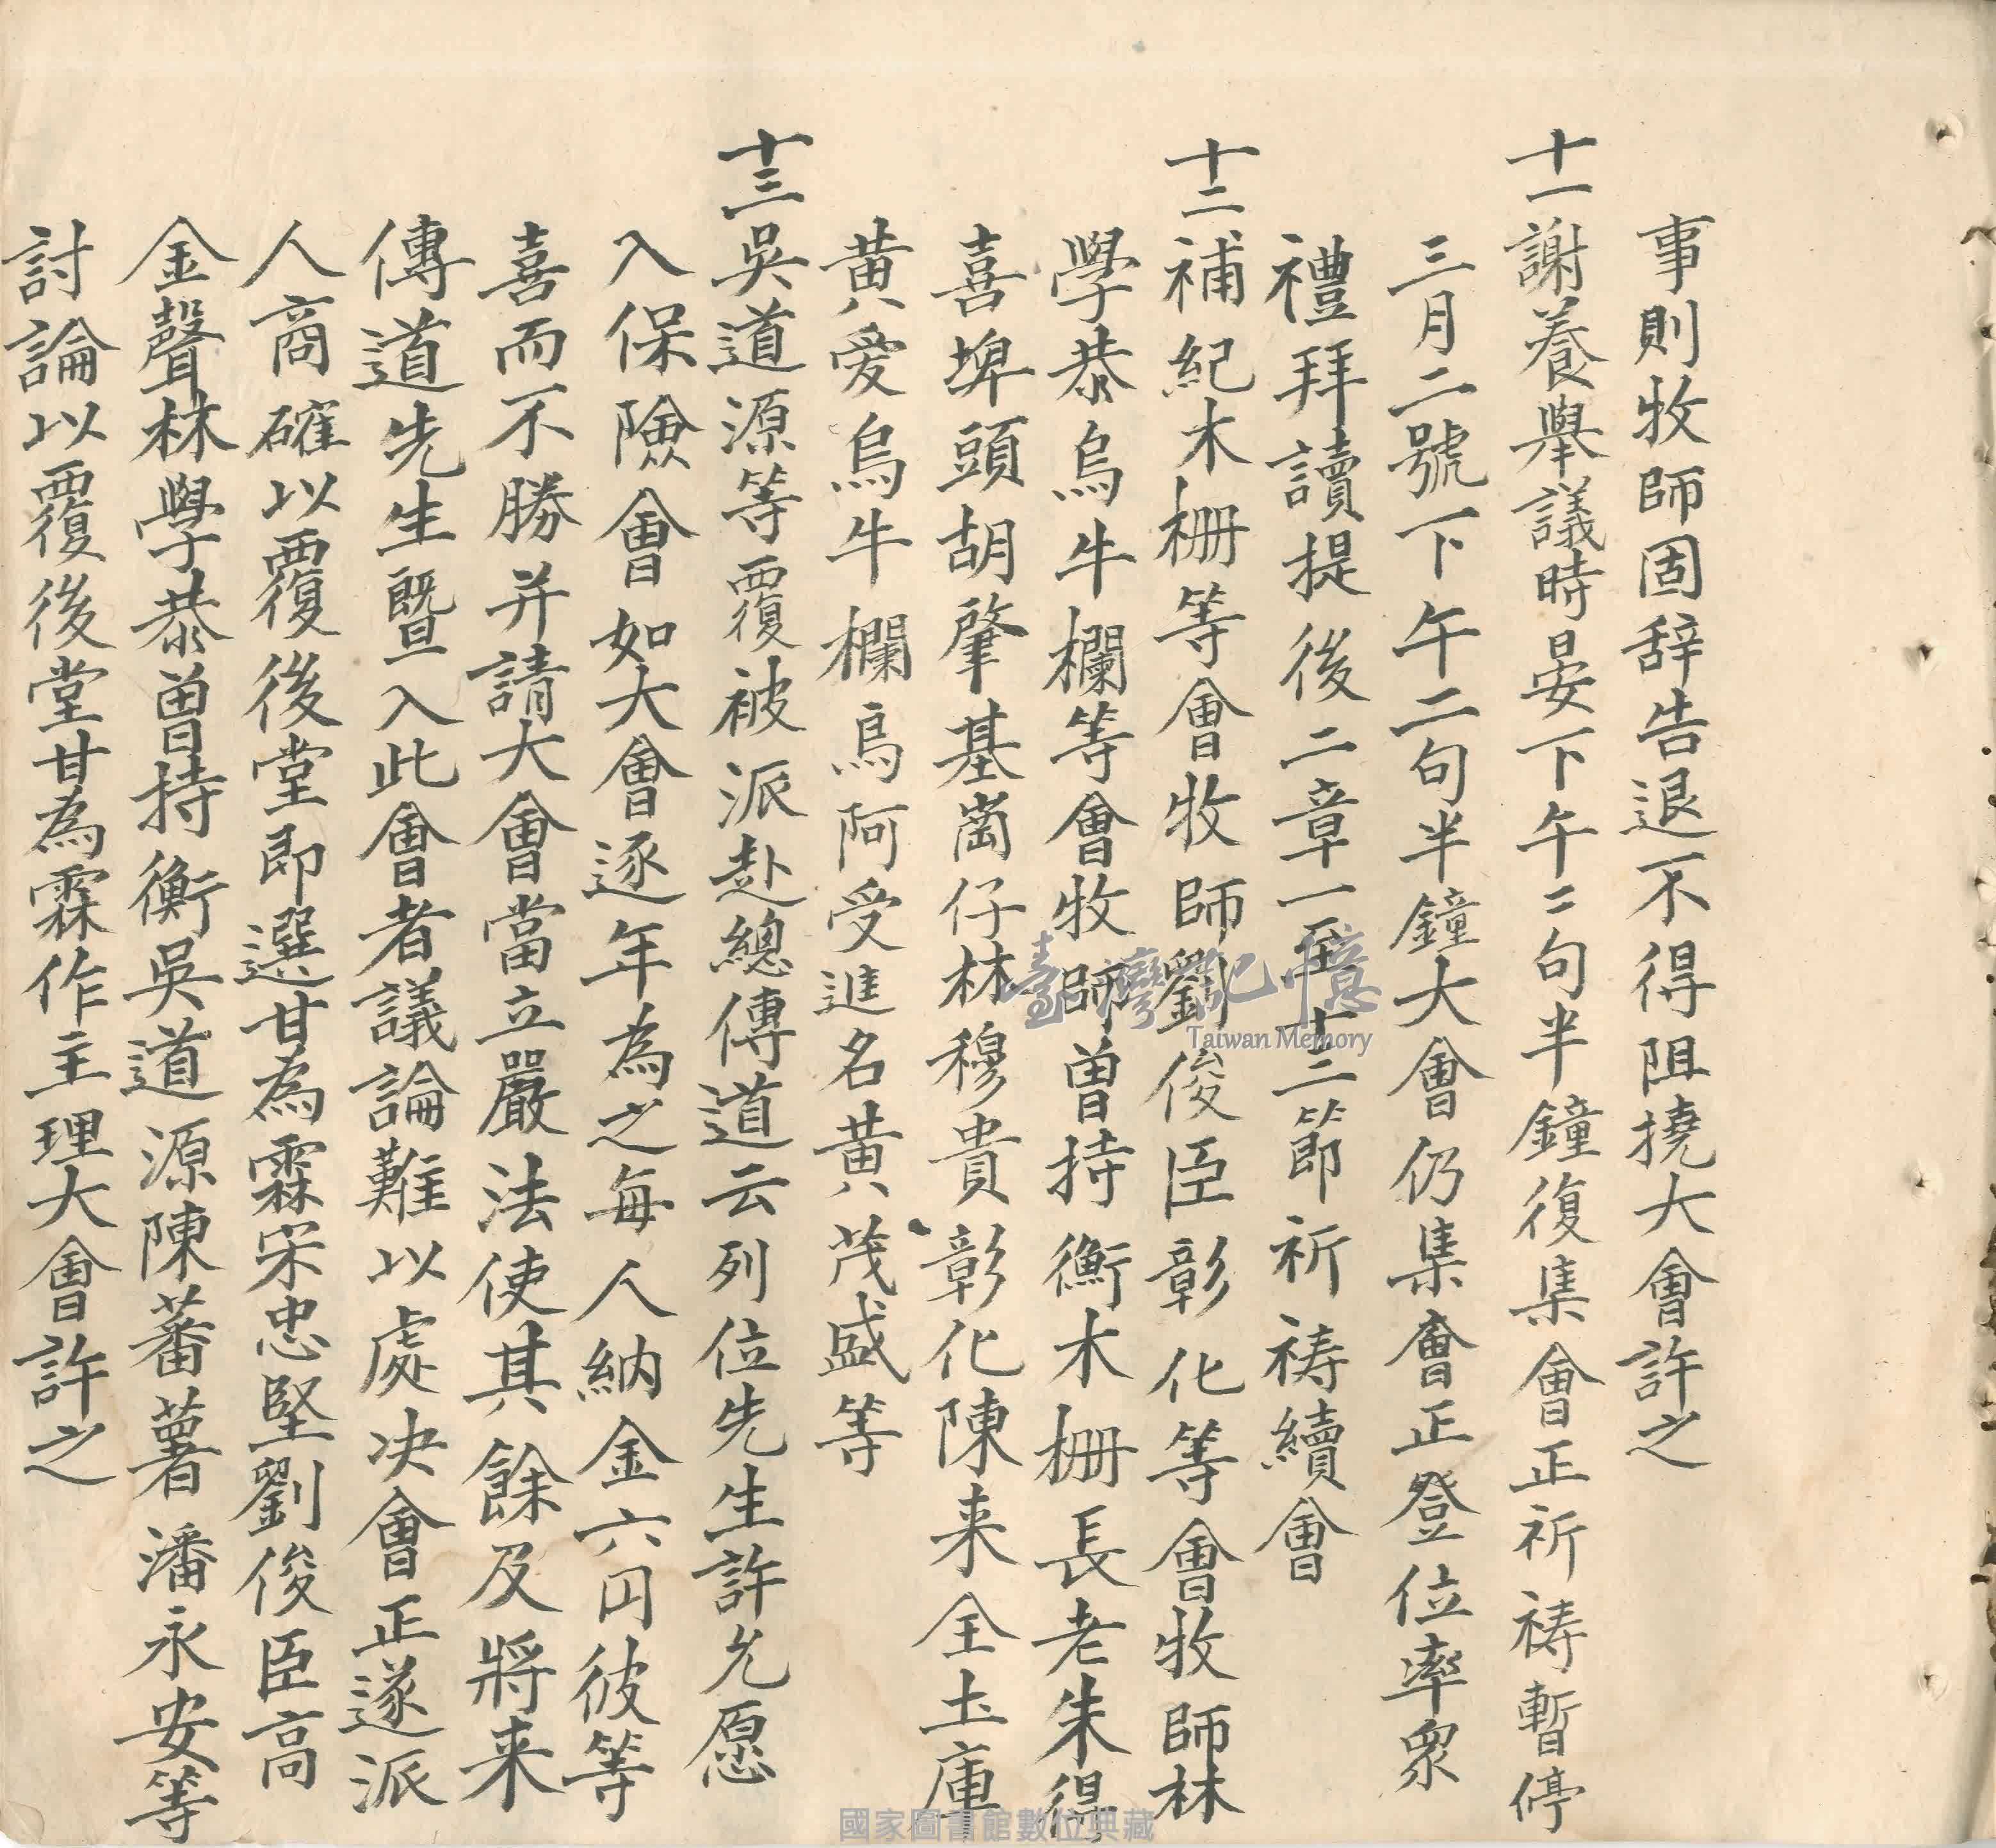 事則牧師固辞告退不得阻撓大會許之
十一謝養舉議時晏下午二句半鐘復集會正祈禱暫停
三月二號下午二句半鐘大會仍集會正登位率眾
禮拜讀提後二章一至十三節祈禱續會
十二補紀木柵等會牧師劉俊臣彰化等會牧師林
學恭烏牛欄等會牧師曽持衡木柵長老朱得
喜埤頭胡肇基崗仔林穆貴彰化陳来全土庫
黄愛烏牛欄烏阿受進名黄茂盛等
十三吳道源等覆被派赴總傳道云列位先生許允愿
入保險會如大會逐年為之每人納金六円彼等
喜而不勝并請大會當立嚴法使其餘及將来
傳道先生暨入此會者議論難以處决會正遂派
人商確以覆後堂即選甘為霖宋忠堅劉俊臣高
金聲林學恭曽持衡吳道源陳蕃薯潘永安等
討論以覆後堂甘為霖作主理大會許之
臺灣記憶
Taiwan Memory
國家圖書館數位典藏